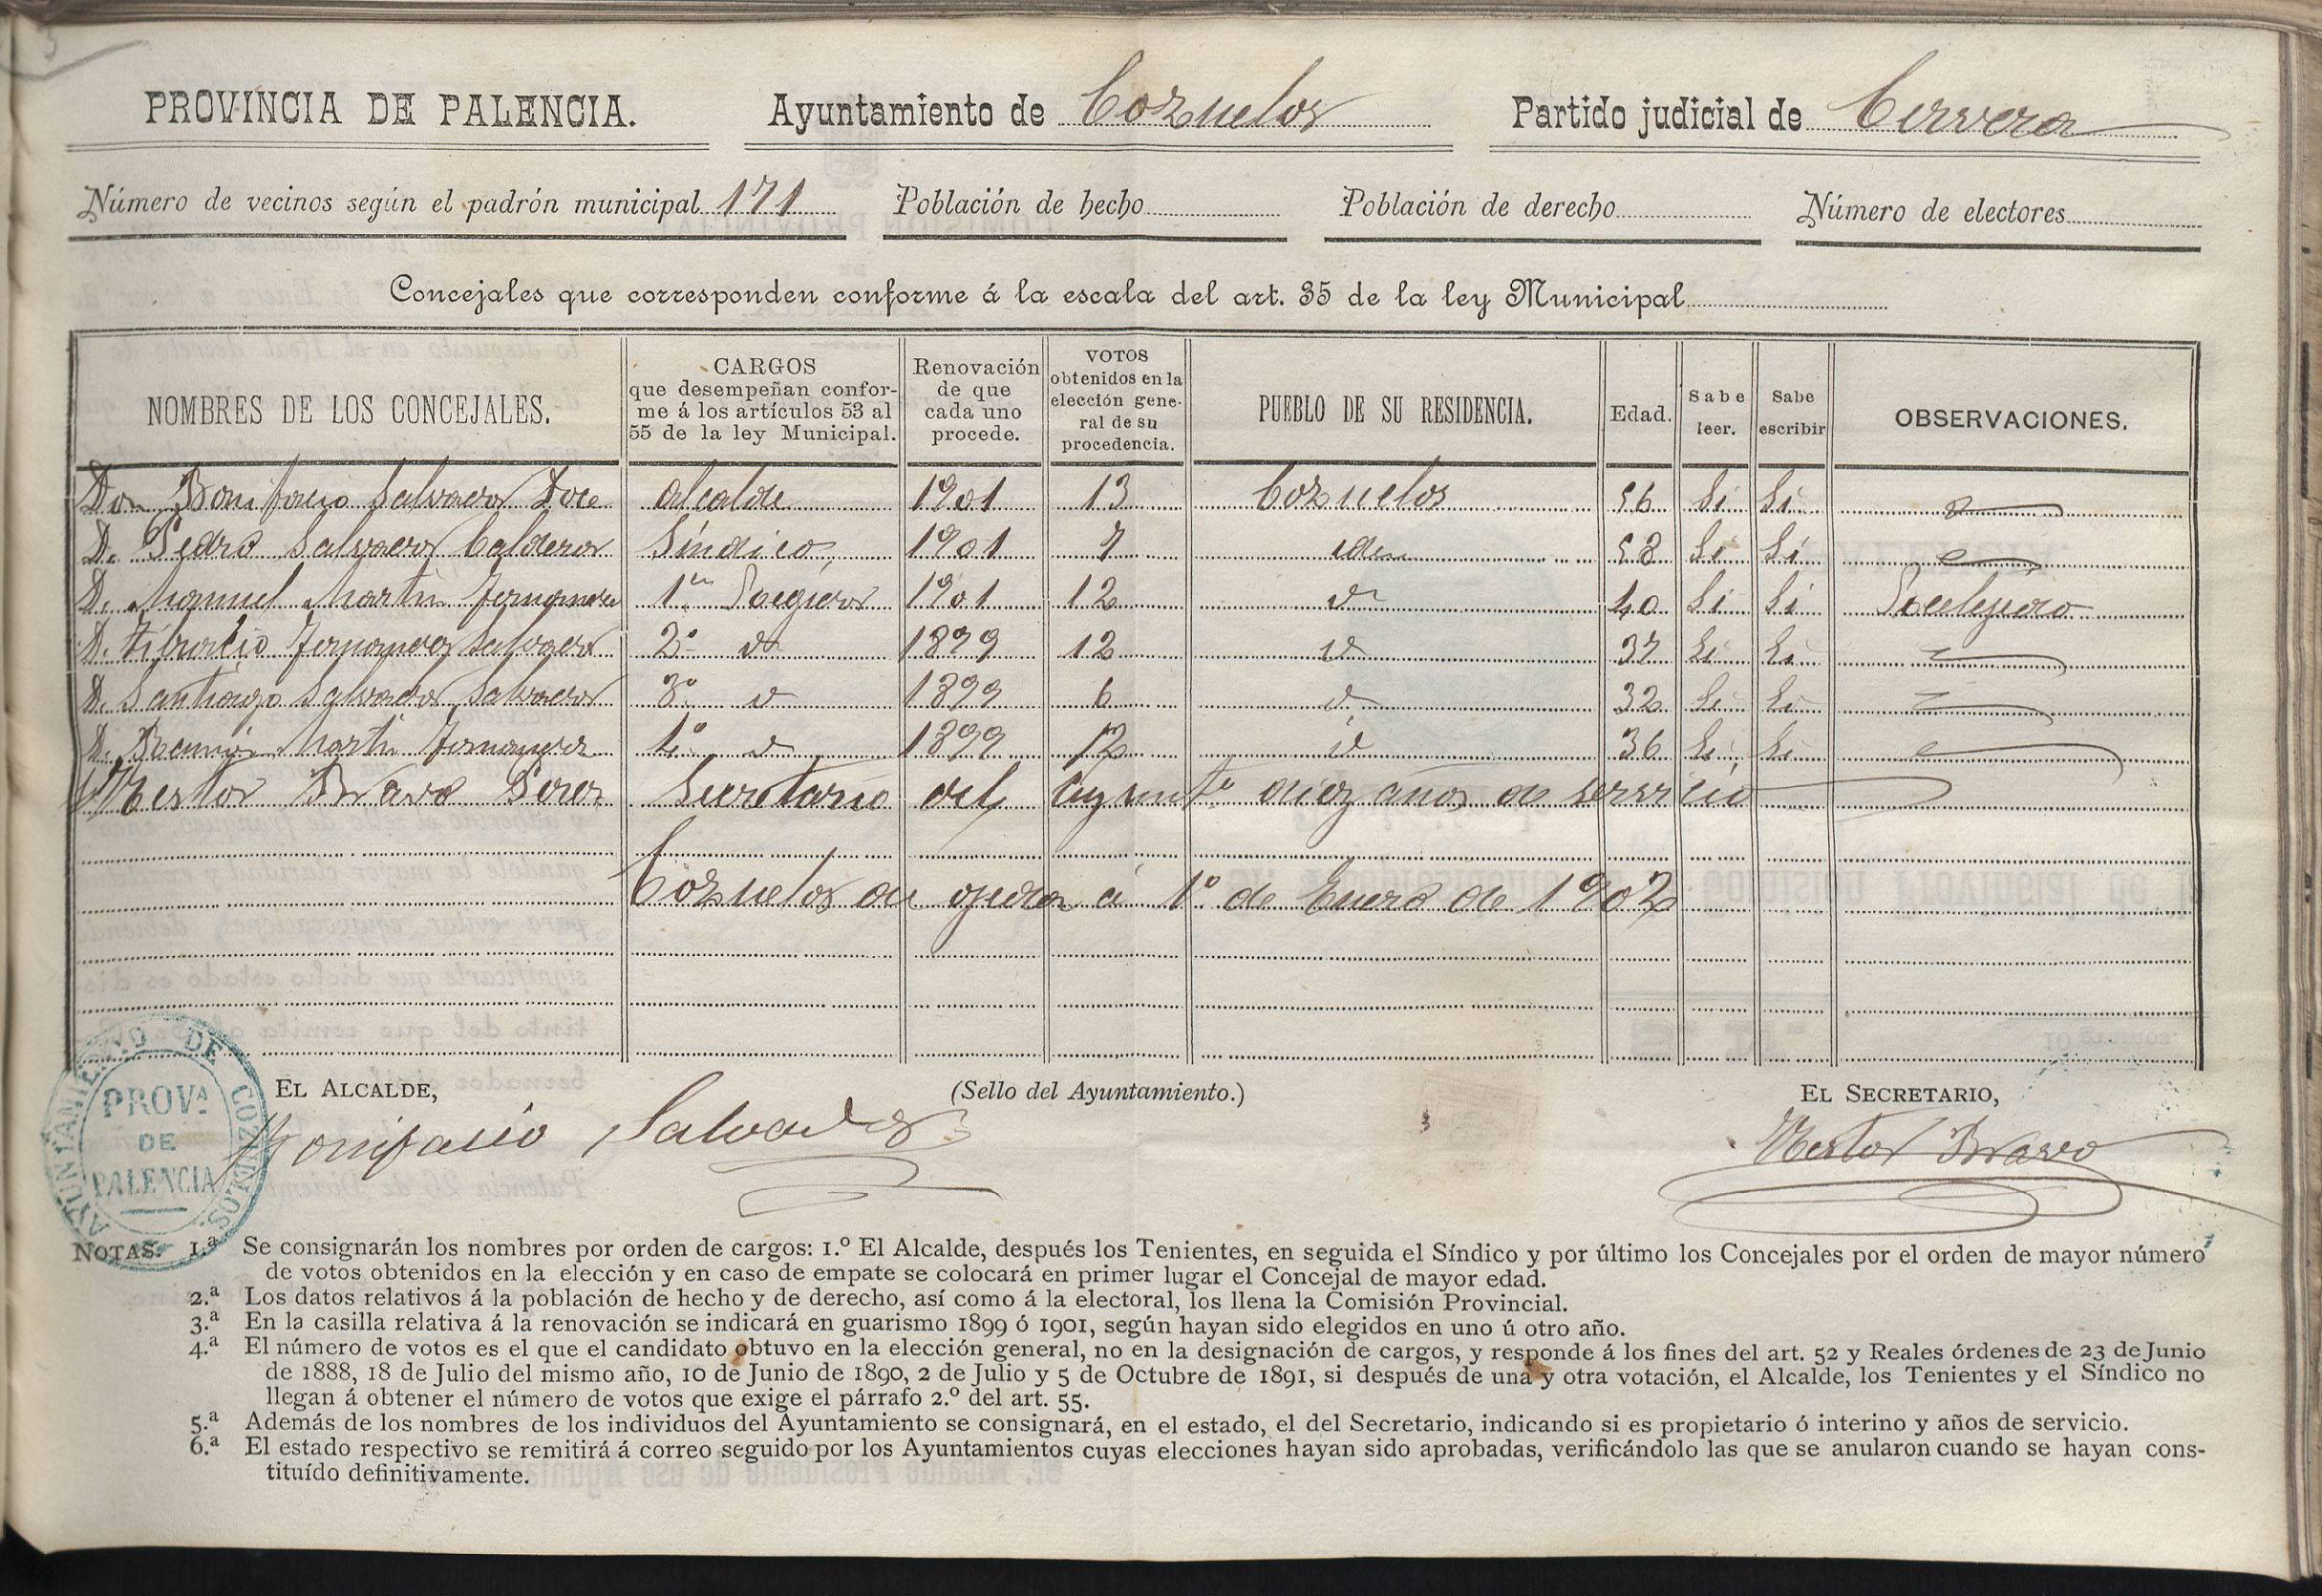 PROVINCIA DE PALENCIA. Ayuntamiento de Cozuelos Partido judicial de Cervera
Número de vecinos según el padrón municipal 171 Población de hecho Población de derecho Número de electores
Concejales que corresponden conforme á la escala del art. 35 de la ley Municipal
NOMBRES DE LOS CONCEJALES.
CARGOS
que desempeñan confor-
me á los artículos 53 al
55 de la ley Municipal.
Renovación
de que
cada uno
procede.
VOTOS
obtenidos en la
elección gene-
ral de su
procedencia.
PUEBLO DE SU RESIDENCIA.
Edad.
Sabe
leer.
Sabe
escribir
OBSERVACIONES.
Don Bonifacio Salvador alcalde 1901 13 Cozuelos 56 Si Si
D. Pedro Salvador Calderon Síndico 1901 7 iden 58 Si Si
D. Manuel Martin Fernandez 1er Regidor 1901 12 id 40 Si Si
D. Tiburcio Fernandez Salvador 2º id 1899 12 id 37 Si Si
D. Santiago Salvador Salvador 3º id 1899 6 id 32 Si Si
D. Martin Fernandez 4º id 1899 12 id 36 Si Si
Nestor Bravo Perez Secretario del Ayunto diez años de servicio
Cozuelos de ojeda á 1º de Enero de 1902
AYUNTAMIENTO DE COZUELOS.
PROVA
DE
PALENCIA
EL ALCALDE, (Sello del Ayuntamiento.) EL SECRETARIO,
Bonifacio Salvador Nestor Bravo
NOTAS. 1.ª Se consignarán los nombres por orden de cargos: 1.º El Alcalde, después los Tenientes, en seguida el Síndico y por último los Concejales por el orden de mayor número
de votos obtenidos en la elección y en caso de empate se colocará en primer lugar el Concejal de mayor edad.
2.ª Los datos relativos á la población de hecho y de derecho, así como á la electoral, los llena la Comisión Provincial.
3.ª En la casilla relativa á la renovación se indicará en guarismo 1899 ó 1901, según hayan sido elegidos en uno ú otro año.
4.ª El número de votos es el que el candidato obtuvo en la elección general, no en la designación de cargos, y responde á los fines del art. 52 y Reales órdenes de 23 de Junio
de 1888, 18 de Julio del mismo año, 10 de Junio de 1890, 2 de Julio y 5 de Octubre de 1891, si después de una y otra votación, el Alcalde, los Tenientes y el Síndico no
llegan á obtener el número de votos que exige el párrafo 2.º del art. 55.
5.ª Además de los nombres de los individuos del Ayuntamiento se consignará, en el estado, el del Secretario, indicando si es propietario ó interino y años de servicio.
6.ª El estado respectivo se remitirá á correo seguido por los Ayuntamientos cuyas elecciones hayan sido aprobadas, verificándolo las que se anularon cuando se hayan cons-
tituído definitivamente.